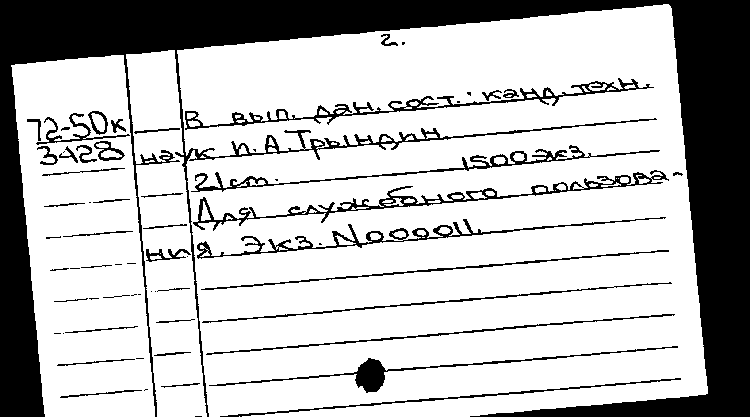 2.
72-50к
3428
В вып. дан. сост.: канд. техн.
наук П.А.Трындин.
21см. 1500экз.
Для служебного пользова-
ния. Экз. N000011.